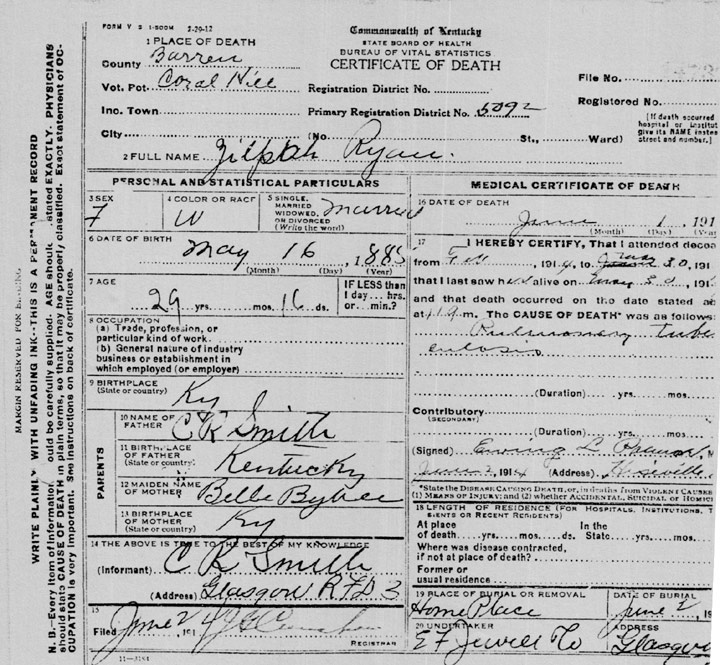 FORM V S 1-500M 2-29-12
Commonwealth of Kentucky
STATE BOARD OF HEALTH
BUREAU OF VITAL STATISTICS
CERTIFICATE OF DEATH
1 PLACE OF DEATH
County Barren
Vot. Pct. Coral Hill
Registration District No.
File No.
Inc. Town
Primary Registration District No. 5092
Registered No.
City (No. St., Ward)
[If death occurred
hospital or institut
give its NAME instea
street and number.]
2 FULL NAME Zilpah Ryan.
PERSONAL AND STATISTICAL PARTICULARS
3 SEX F
4 COLOR OR RACE W
5 SINGLE, MARRIED WIDOWED, OR DIVORCED (Write the word) Married
6 DATE OF BIRTH May 16, 1885
(Month) (Day) (Year)
7 AGE
29 yrs. mos. 16 ds.
IF LESS than
1 day... hrs.
or... min.?
8 OCCUPATION
(a) Trade, profession, or
particular kind of work
(b) General nature of industry
business or establishment in
which employed (or employer)
9 BIRTHPLACE
(State or country) Ky
PARENTS
10 NAME OF
FATHER C K Smith
11 BIRTHPLACE
OF FATHER
(State or country) Kentucky
12 MAIDEN NAME
OF MOTHER Belle Bybee
13 BIRTHPLACE
OF MOTHER
(State or country) Ky
14 THE ABOVE IS TRUE TO THE BEST OF MY KNOWLEDGE
(Informant) C K Smith
(Address) Glasgow RFD 3
15
Filed June 2 1914
REGISTRAR
11-3184
MEDICAL CERTIFICATE OF DEATH
16 DATE OF DEATH
June 1, 191
(Month) (Day) (Year
17 I HEREBY CERTIFY, That I attended decea
from Feb, 1914, to May 30, 191
that I last saw her alive on May 30, 191
and that death occurred on the date stated a
at m. The CAUSE OF DEATH* was as follows:
Pulmonary tuber
culosis
(Duration) yrs. mos.
Contributory
(SECONDARY)
(Duration) yrs. mos.
(Signed) Ewing L
June 2, 1914 (Address) Hiseville
*State the DISEASE CAUSING DEATH, or, in deaths from VIOLENT CAUSES
(1) MEANS OF INJURY; and (2) whether ACCIDENTAL, SUICIDAL or HOMICI
18 LENGTH OF RESIDENCE (FOR HOSPITALS, INSTITUTIONS, T
SIENTS OR RECENT RESIDENTS)
At place In the
of death yrs. mos. ds. State yrs. mos.
Where was disease contracted,
if not at place of death?
Former or
usual residence
19 PLACE OF BURIAL OR REMOVAL
Home Place
DATE OF BURIAL
June 2, 191
20 UNDERTAKER
E F Jewell Co
ADDRESS
Glasgow
MARGIN RESERVED FOR BINDING
WRITE PLAINLY WITH UNFADING INK--THIS IS A PERMANENT RECORD
N. B.--Every item of information should be carefully supplied. AGE should stated EXACTLY. PHYSICIANS
should state CAUSE OF DEATH in plain terms, so that it may be properly classified. Exact statement of OC-
CUPATION is very important. See instructions on back of certificate.